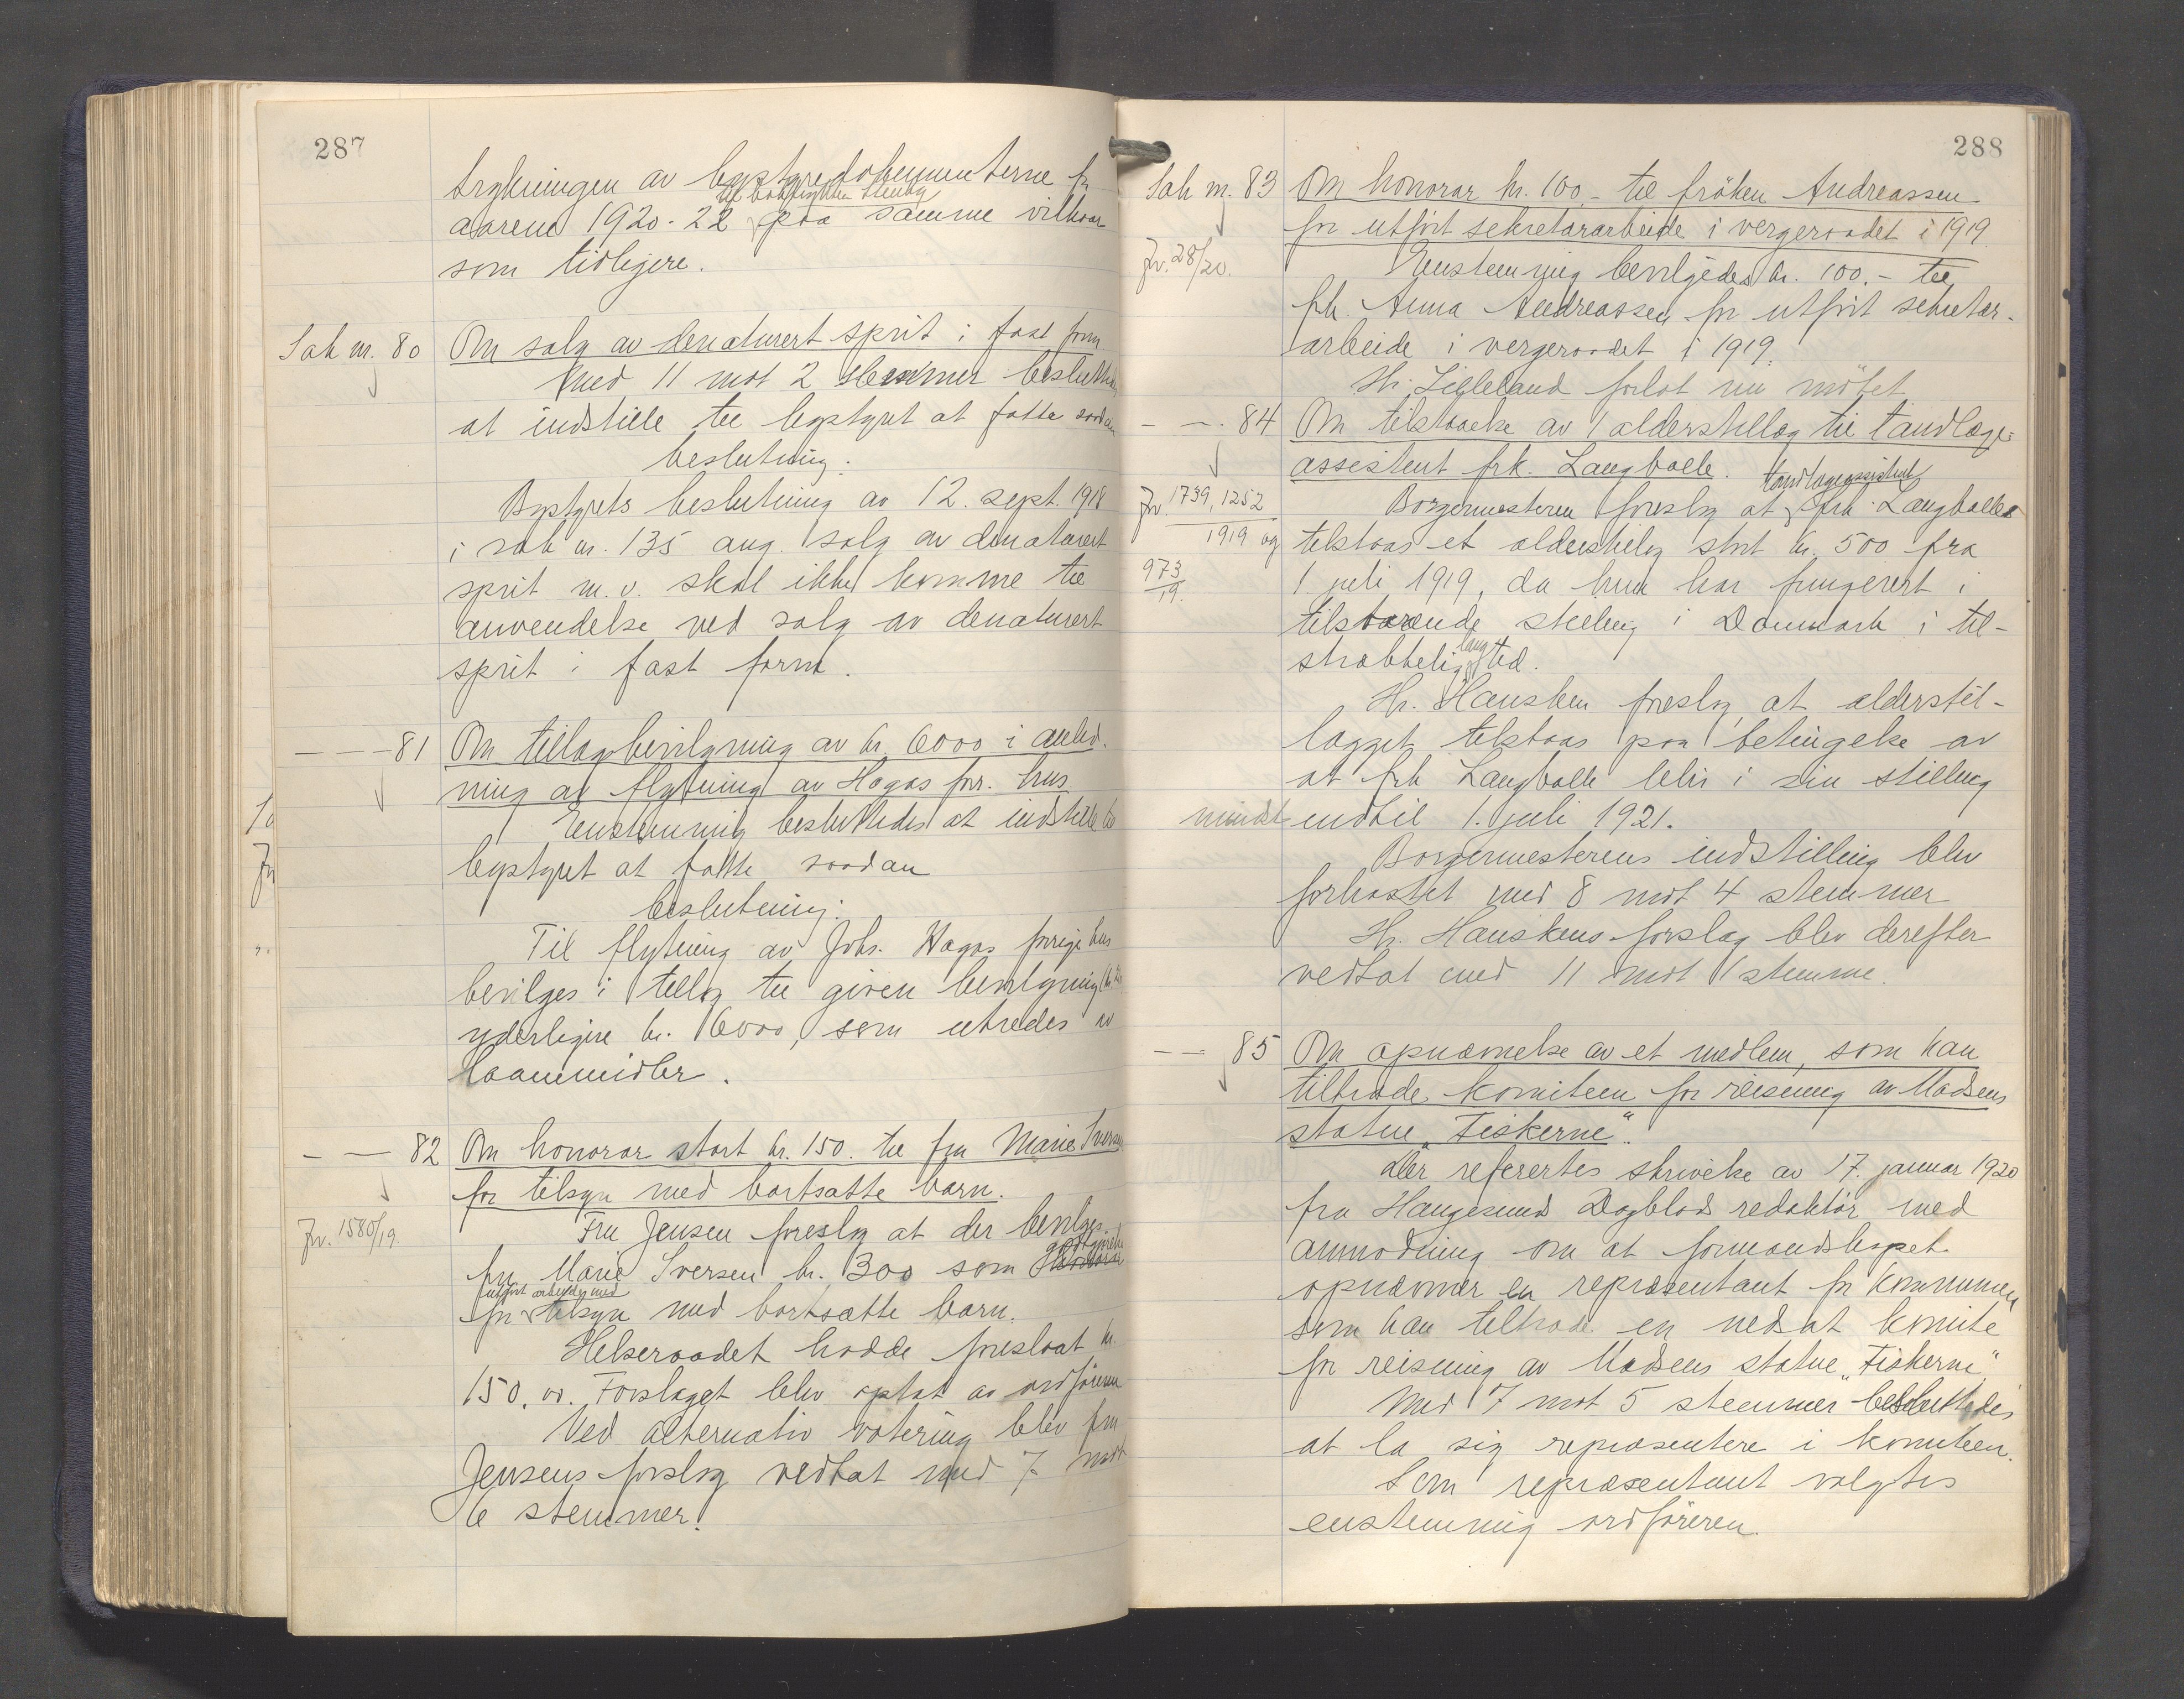 287
trykningen av bystyredokumenterne for
til boktrykker
aarene 1920-22 paa samme vilkaar
som tidligere.
Sak nr. 80
Om salg av denaturert sprit i fast form
Med 11 mot 2 stemmer besluttedes
at indstille til bystyret at fatte saadan
beslutning:
Bystyrets beslutning av 12. sept. 1918
i sak nr. 135 ang. salg av denaturert
sprit m.v. skal ikke komme til
anvendelse ved salg av denaturert
sprit i fast form.
— — - 81
Om tillægsbevilgning av kr. 6000 i anled-
ning av flytning av Hagas forr. hus
Enstemmig besluttedes at indstille til
bystyret at fatte saadan
beslutning:
Til flytning av Johs. Hagas forrige hus
bevilges i tillæg til given bevilgning
yderligere kr. 6000, som utredes av
laanemidler.
— — 82
Om honorar stort kr. 150. til fru Marie Iversen
for tilsyn med bortsatte barn.
Jnr. 1580/19
Fru Jensen foreslog at der bevilges
godtgjørelse
fru Marie Iversen kr. 300 som honorar
utført arbeide med
for tilsyn med bortsatte barn.
Helseraadet hadde foreslaat kr.
150.00. Forslaget blev optat av ordføreren
Ved alternativ votering blev fru
Jensens forslag vedtat med 7 mot
6 stemmer.
288
Sak nr. 83
Om honorar kr. 100.- til frøken Andreassen
for utført sekretærarbeide i vergeraadet i 1919.
Jnr. 28/20.
Enstemmig bevilgedes kr. 100.- til
frk. Anna Andreassen for utført sekretær-
arbeide i vergeraadet i 1919.
Hr. Lilleland forlot nu møtet.
- —. 84
Om tilstaaelse av 1 alderstillæg til tandlæge-
assistent frk. Langballe.
tandlægeassistent
Jnr. 1739, 1252
1919 og
973
19.
Borgermesteren foreslog at frk. Langballe
tilstaas et alderstillæg stort kr. 500 fra
1. juli 1919, da hun har fungerert i
tilsvarende stilling i Danmark i til-
lang
strækkelig tid.
Hr. Hausken foreslog at alderstil-
lægget tilstaas paa betingelse av
at frk Langballe blir i sin stilling
mindst indtil 1. juli 1921.
Borgermesterens indstilling blev
forkastet med 8 mot 4 stemmer
Hr. Hauskens forslag blev derefter
vedtat med 11 mot 1 stemme.
— — 85
Om opnævnelse av et medlem, som kan
tiltræde komiteen for reisning av Madsens
statue "Fiskerne".
Der refertes skrivelse av 17. januar 1920
fra Haugesunds Dagblads redaktør med
anmodning om at formandskapet
opnævner en repræsentant for kommunen
som kan tiltræde en nedsat komite
for reisning av Madsens statue "Fiskerne"
Med 7 mot 5 stemmer besluttedes
at la sig repræsentere i komiteen.
Som repræsentant valgtes
enstemmig ordføreren.